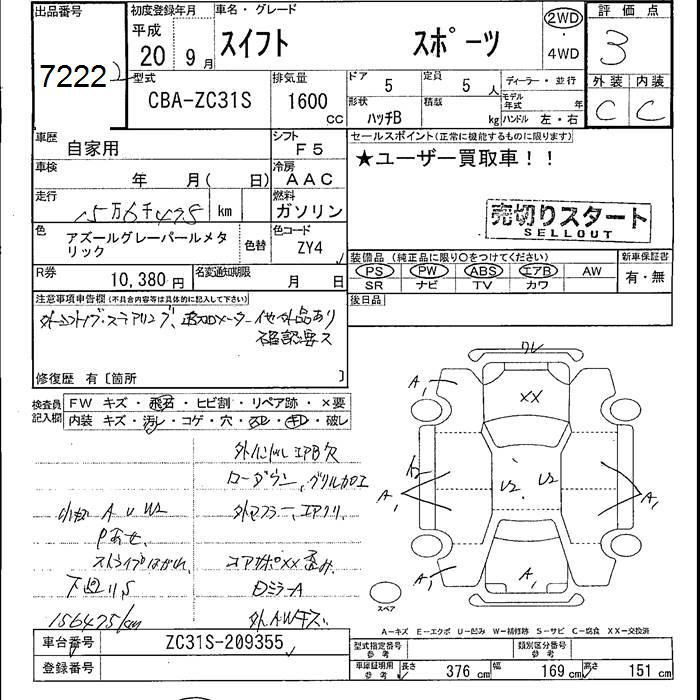 出品番号 初度登録年月 車名・グレード 2WD 評価点
平成
7222 20 9月 スイフト スポーツ ・ 3
4WD
型式 排気量 ドア 5 定員 5人 ディーラー・並行 外装 内装
CBA-ZC31S 1600 CC 形状 ハッチB 積載 kg モデル年式 年 C C
ハンドル 左・右
車歴 自家用 シフト F5 セールスポイント(正常に機能するものに限ります)
車検 年 月( 日) 冷房 AAC ★ユーザー買取車!!
走行 15万6千475 km 燃料 ガソリン 売切りスタート
SELLOUT
色 アズールグレーパールメタリック 色替 色コード ZY4
装備品(純正品に限り○をつけてください) 新車保証書
R券 10,380円 名変通知期限 月 日 PS PW ABS エアB AW 有・無
SR ナビ TV カワ
注意事項申告欄(不具合内容等は具体的に記入して下さい) 後日品
外シフトノブ・ステアリング、
メーター 他外品あり
確認要ス
修復歴 有〔箇所 〕
検査員記入欄 FW キズ・飛石・ヒビ割・リペア跡・×要
内装 キズ・汚レ・コゲ・穴・スレ・キレ・破レ
ワレ
A₁ XX
外ハンドル エアB欠
ローダウン、グリル加工
U2 U2
小傷 A U W2 外マフラー、エアクリ、
A₁ A₁
Pあせ
ストライプはがれ コアサポXX 歪み
下廻りS ミラーA
A₁ A₁
156475km 外AWキズ
スペア
A-キズ E-エクボ U-凹み W-補修跡 S-サビ C-腐食 XX-交換済
車台番号 ZC31S-209355 型式指定番号 参考 類別区分番号 参考
登録番号 車庫証明用 参考 長さ 376cm 幅 169cm 高さ 151cm